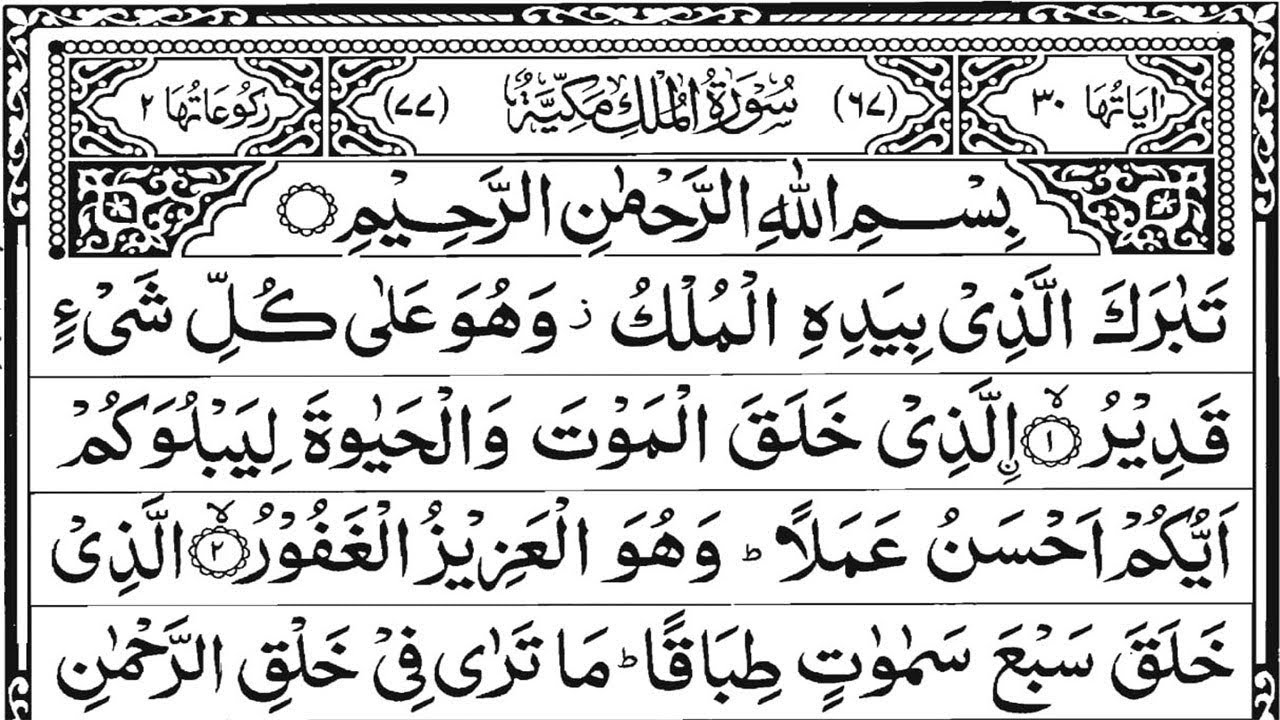 اٰيَاتُهَا ٣٠ (٦٧) سُوْرَةُ الْمُلْكِ مَكِّيَّةٌ (٧٧) رُكُوْعَاتُهَا ٢
بِسْمِ اللّٰهِ الرَّحْمٰنِ الرَّحِيْمِ
تَبٰرَكَ الَّذِىْ بِيَدِهِ الْمُلْكُ ز وَهُوَ عَلٰى كُلِّ شَىْءٍ
قَدِيْرُ ۙ﴿١﴾ ࣙالَّذِىْ خَلَقَ الْمَوْتَ وَالْحَيٰوةَ لِيَبْلُوَكُمْ
اَيُّكُمْ اَحْسَنُ عَمَلًا ؕ وَهُوَ الْعَزِيْزُ الْغَفُوْرُ ۙ﴿٢﴾ الَّذِىْ
خَلَقَ سَبْعَ سَمٰوٰتٍ طِبَاقًا ؕ مَا تَرٰى فِىْ خَلْقِ الرَّحْمٰنِ